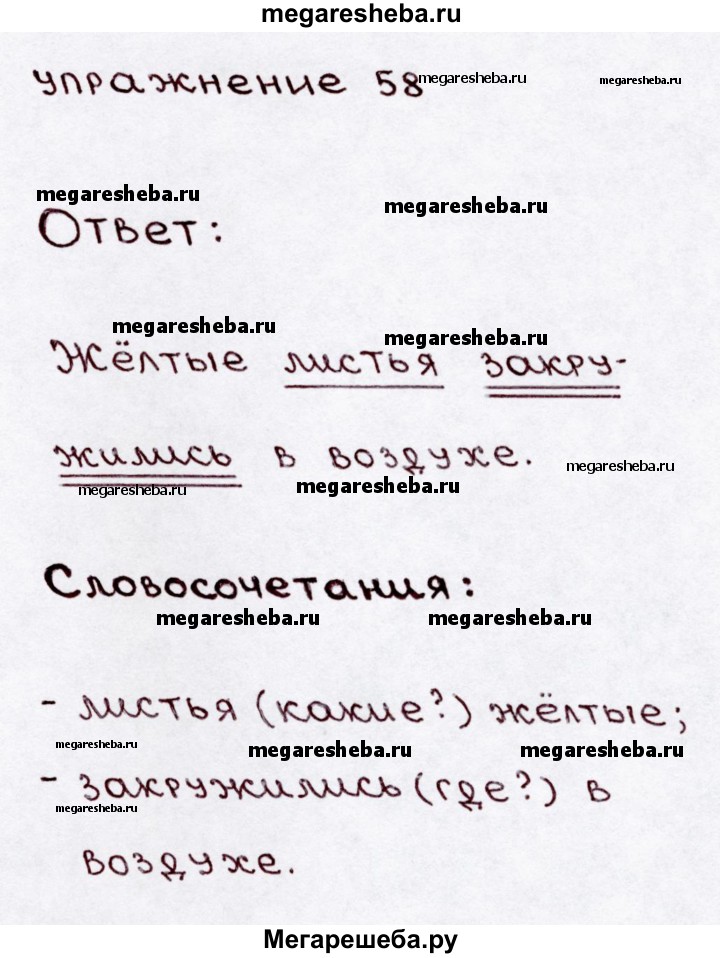 megaresheba.ru
упражнение 58 megaresheba.ru megaresheba.ru
megaresheba.ru megaresheba.ru
Ответ:
megaresheba.ru megaresheba.ru
Жёлтые листья закру-
жились в воздухе. megaresheba.ru
megaresheba.ru megaresheba.ru
Словосочетания:
megaresheba.ru megaresheba.ru
- листья (какие?) жёлтые;
megaresheba.ru megaresheba.ru megaresheba.ru
- закружились (где?) в
megaresheba.ru
воздухе.
Мегарешеба.ру